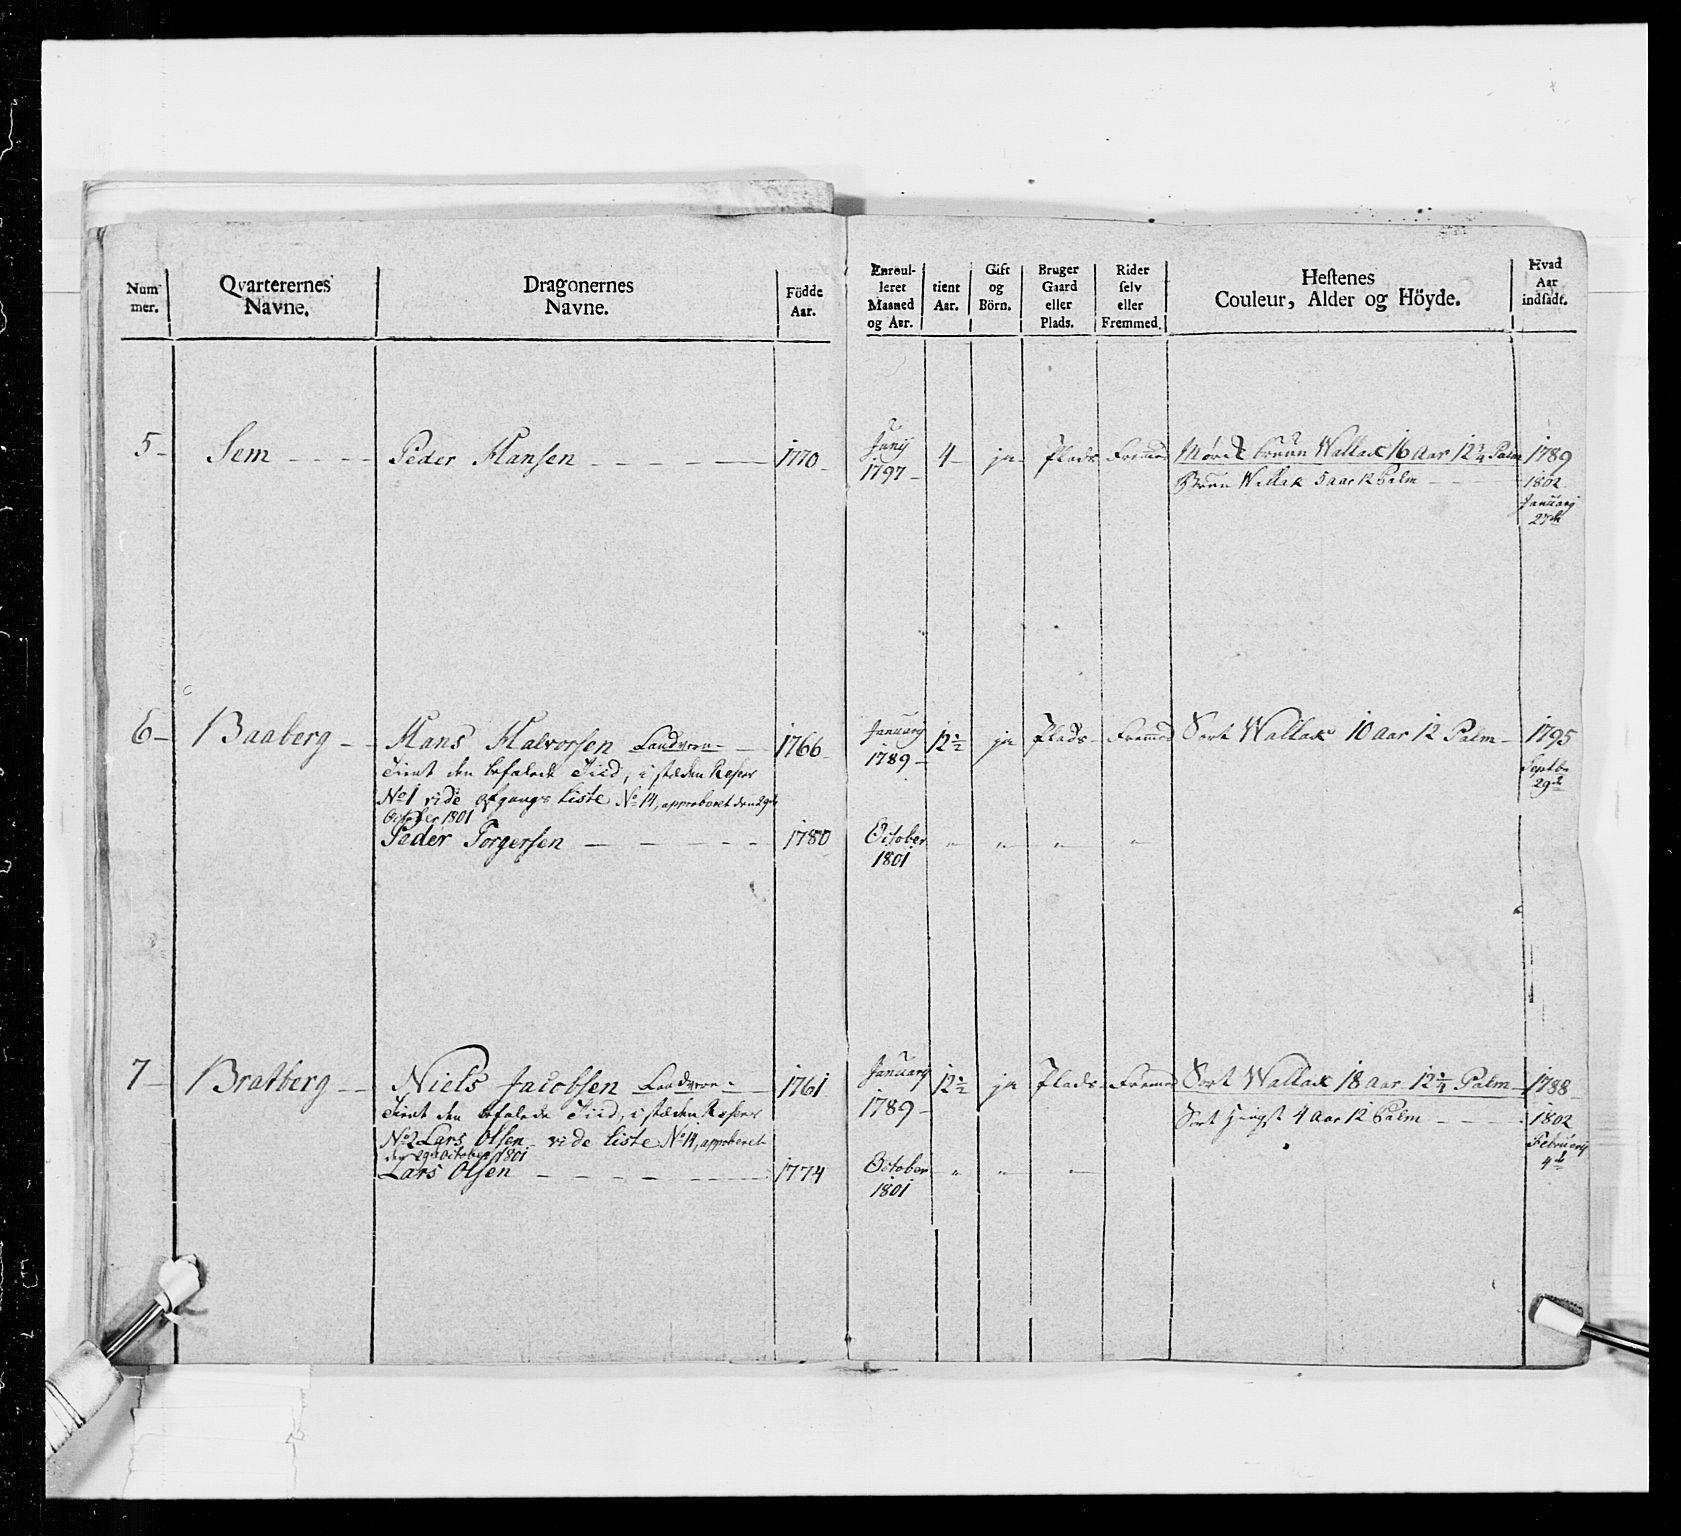 Num-
mer.
Qvarterernes
Navne.
Dragonernes
Navne.
Födde
Aar.
Enroul-
leret
Maaned
og Aar.
tient
Aar.
Gift
og
Börn.
Bruger
Gaard
eller
Plads.
Rider
selv
eller
Fremmed.
Hestenes
Couleur, Alder og Höyde.
Hvad
Aar
indsadt.
5 - Sem - - - - Peder Hansen - - - - - 1770 - Junij 1797 - 4 - ja - Plads Fremmed Mörk bruun Wallak 16 Aar 12 3/4 Palm 1789
Bruun Wallak 5 aar 12 Palm - - - - 1802
Januarij
27de
6 - Baaberg - - Hans Halvorsen Landvern - 1766 - Januarij 1789 - 12 1/2 ja Plads - Fremmed Sort Wallak 10 Aar 12 Palm - 1795
Septbr
29de
Tient den befalede Tiid, i stæden Reserv
No 1 vide afgangs Liste No 14, approberet den 29de
October 1801
Peder Torgersen - - - - - 1780 October 1801 " " " "
7 - Bratberg - - Niels Jacobsen Landvern - 1761 Januarij 1789 - 12 1/2 ja Plads Fremmed Sort Wallak 18 Aar 12 1/4 Palm - 1788
Sort Hingst 4 Aar 12 Palm - - - - 1802
Februarij
4de
Tient den befalede Tiid, i stæden Reserv
No 2 Lars Olsen - vide Liste No 14, approberet
den 29de October 1801
Lars Olsen - - - - - - 1774 October 1801 " " "